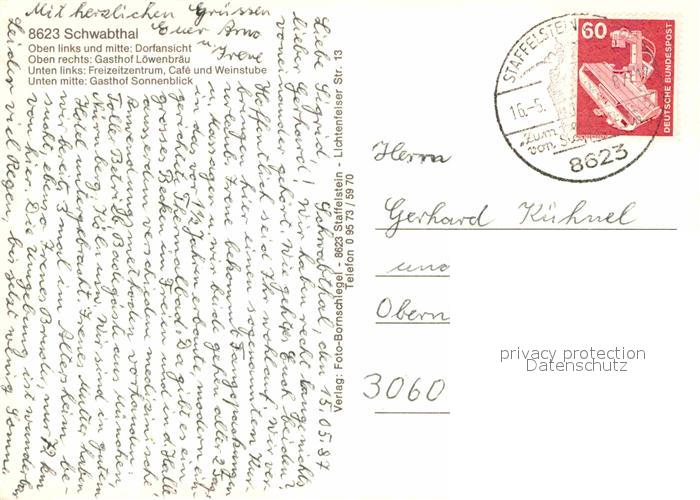 Mit herzlichen Grüssen
Euer Arno
u. Irene
8623 Schwabthal
Oben links und mitte: Dorfansicht
Oben rechts: Gasthof Löwenbräu
Unten links: Freizeitzentrum, Café und Weinstube
Unten mitte: Gasthof Sonnenblick
Schwabthal, den 15.05.87
Liebe Sigrid,
lieber Gerhard! Wir haben recht lange nichts
voneinander gehört. Wie geht es Euch beiden?
Hoffentlich seid Ihr wohlauf. Wir ver-
bringen hier einen sogenannten Kur-
urlaub. Irene bekommt Fangopackungen
u. Massagen u. wir beide gehen alle 2 Tage
in das vor 1 1/2 Jahren erbaute, modern ein-
gerichtete Thermalbad. Da gibt es ein
grosses Becken im Freien und in der Halle
ausserdem verschiedene medizinische
Anwendungsmethoden vorhanden.
Toller Betrieb, Badegäste aus München,
Nürnberg, Köln usw. Wir sind in gutem
Hotel untergebracht. Irenes Mutter haben
wir bereits 3 mal im Altesheim be-
sucht, ebenso Irenes Bruder, nur 72 km
von hier. Die Umgebung ist wunderbar
Leider viel Regen, bis jetzt wenig Sonne.
Verlag: Foto-Bornschlegel - 8623 Staffelstein - Lichtenfelser Str. 13
Telefon 0 95 73 / 59 70
STAFFELSTEIN
16.-5.
zum
von
8623
60
DEUTSCHE BUNDESPOST
Herrn
Gerhard Kühnel
und
Obern
3060
privacy protection
Datenschutz